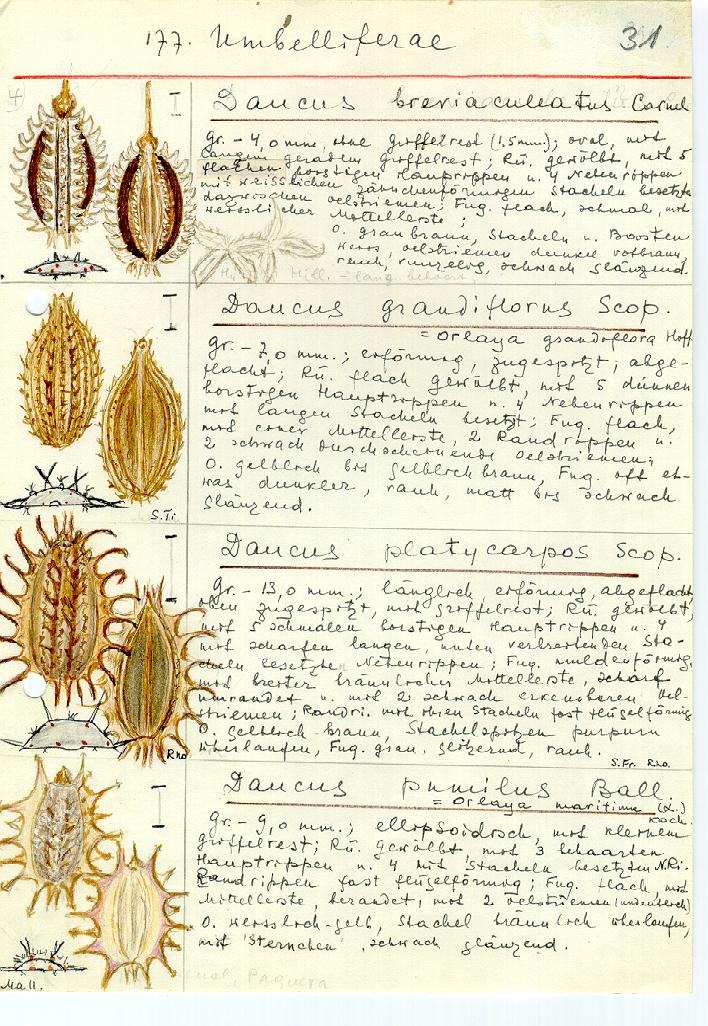 177. Umbelliferae 31
Daucus breviaculeatus Carnel
gr. - 4,0 mm, ohne Griffelrest (1.5 mm.); oval, mit
langem geradem Griffelrest; Rü. gewölbt, mit 5
flachen, borstigen Hauptrippen u. 4 Nebenrippen
mit weisslichen zähnchenförmigen Stacheln besetzt,
dazwischen Oelstriemen; Fug. flach, schmal, mit
weisslicher Mittelleiste;
O. graubraun, Stacheln u. Borsten
weiss, Oelstriemen dunkel rotbraun,
rauh, runzelig, schwach glänzend.
Daucus grandiflorus Scop.
= Orlaya grandiflora Hoff
gr. - 7,0 mm.; eiförmig, zugespitzt; abge-
flacht; Rü. flach gewölbt, mit 5 dünnen
borstigen Hauptrippen u. 4 Nebenrippen
mit langen Stacheln besetzt; Fug. flach,
mit einer Mittelleiste, 2 Randrippen u.
2 schwach durchscheinende Oelstriemen;
O. gelblich bis gelblichbraun, Fug. oft et-
was dunkler, rauh, matt bis schwach
glänzend.
S.Ti.
Daucus platycarpos Scop.
gr. - 13,0 mm.; länglich eiförmig, abgeflacht
oben zugespitzt, mit Griffelrest; Rü. gewölbt,
mit 5 schmalen borstigen Hauptrippen u. 4
mit scharfen langen, unten verbreitenden Sta-
cheln besetzten Nebenrippen; Fug. muldenförmig,
mit breiter bräunlicher Mittelleiste, scharf
umrandet u. mit 2 schwach erkennbaren Oel-
striemen; Randri. mit ihren Stacheln fast flügelförmig
O. gelblich-braun, Stachelspitzen purpurn
überlaufen, Fug. grau. glitzernd, rauh.
Rho.
S.Fr. Rho.
Daucus pumilus Ball.
= Orlaya maritima (L.)
Koch.
gr. - 9,0 mm.; ellipsoidisch, mit kleinem
Griffelrest; Rü. gewölbt, mit 3 behaarten
Hauptrippen u. 4 mit Stacheln besetzten N.Ri.
Randrippen fast flügelförmig; Fug. flach, mit
Mittelleiste, berandet, mit 2 Oelstriemen (undeutlich)
O. weisslich-gelb, Stachel bräunlich überlaufen,
mit 'Sternchen', schwach glänzend.
Mall.
Paguera